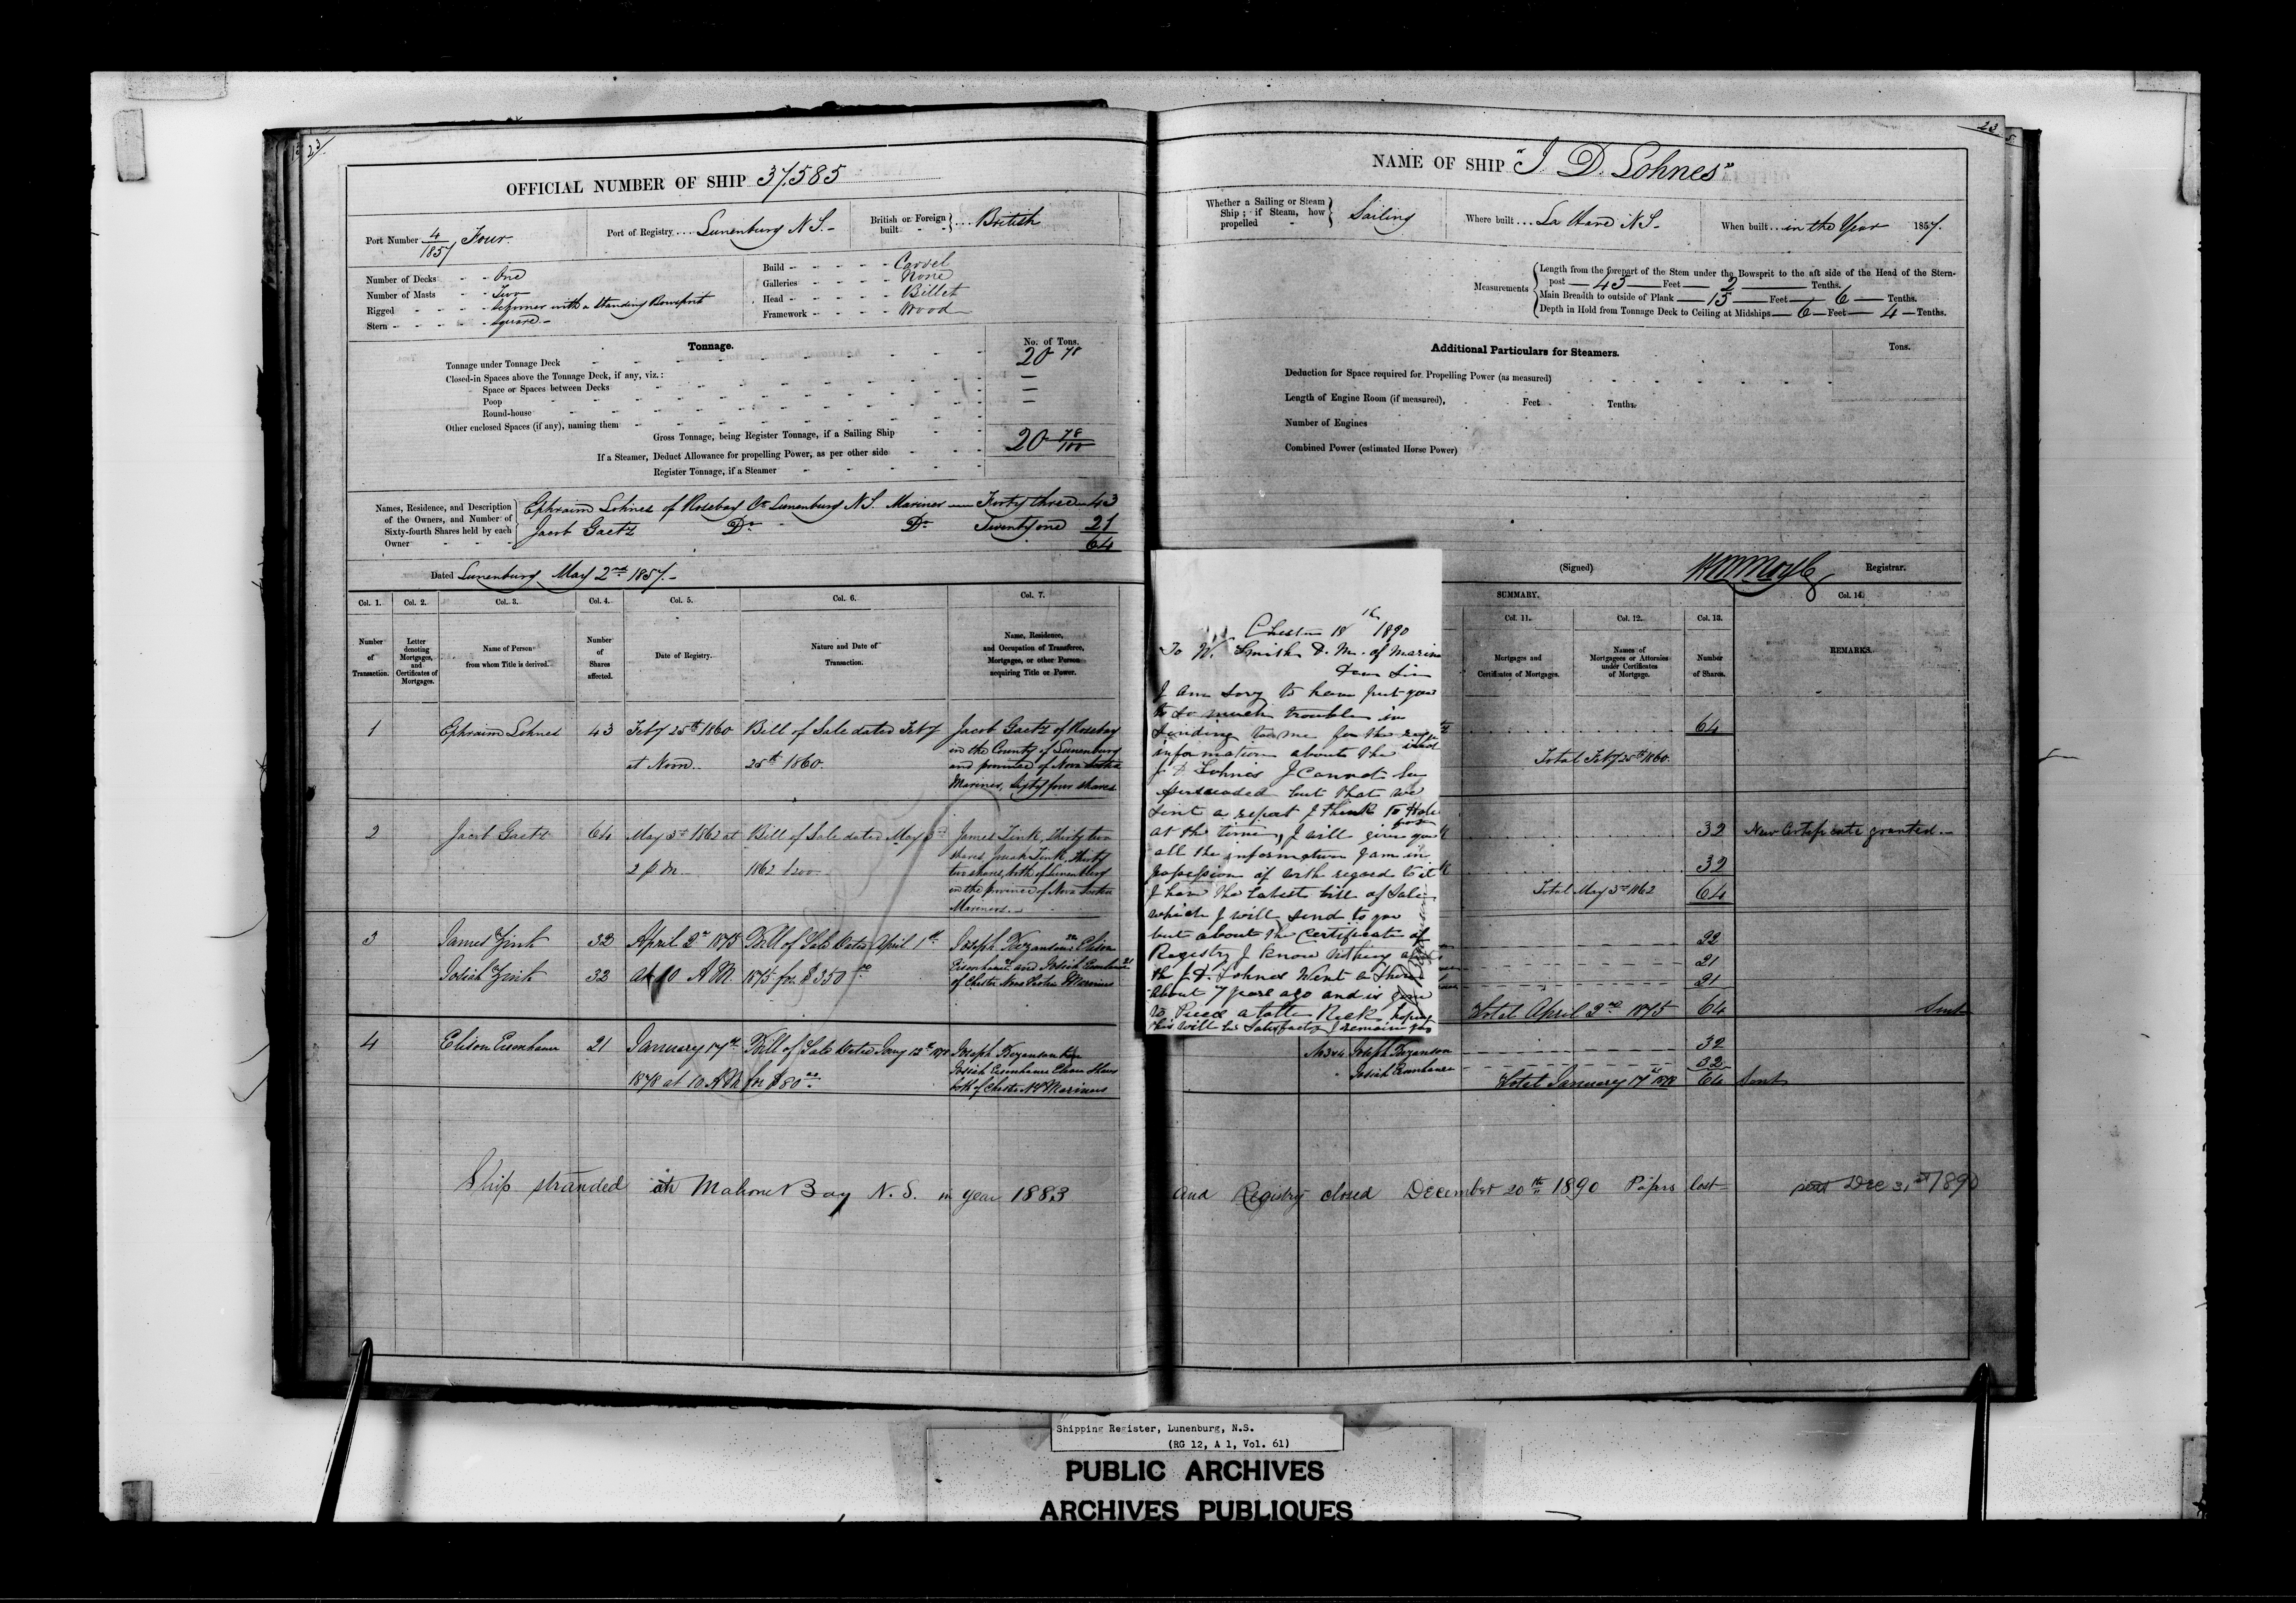 23
OFFICIAL NUMBER OF SHIP 37.585
Port Number 4/1857 Four.
Port of Registry Lunenburg N.S.
British or Foreign built British
Number of Decks One
Number of Masts Two
Rigged Schooner with a Standing Bowsprit
Stern Square
Build Carvel
Galleries None
Head Billet
Framework Wood
Tonnage.
No. of Tons.
Tonnage under Tonnage Deck 20 78
Closed-in Spaces above the Tonnage Deck, if any, viz.:
Space or Spaces between Decks —
Poop —
Round-house —
Other enclosed Spaces (if any), naming them
Gross Tonnage, being Register Tonnage, if a Sailing Ship 20 78/100
If a Steamer, Deduct Allowance for propelling Power, as per other side
Register Tonnage, if a Steamer
Names, Residence, and Description of the Owners, and Number of Sixty-fourth Shares held by each Owner
Ephraim Lohnes of Rosebay Co Lunenburg N.S. Mariner — Forty three — 43
Jacob Gaetz Do Do Twenty one 21
64
Dated Lunenburg May 2nd 1857.
Col. 1. Col. 2. Col. 3. Col. 4. Col. 5. Col. 6. Col. 7.
Number of Transaction.
Letter denoting Mortgages, and Certificates of Mortgages.
Name of Person from whom Title is derived.
Number of Shares affected.
Date of Registry.
Nature and Date of Transaction.
Name, Residence, and Occupation of Transferee, Mortgagee, or other Person acquiring Title or Power.
1 Ephraim Lohnes 43 Feby 25th 1860 at Noon. Bill of Sale dated Feby 25th 1860. Jacob Gaetz of Rosebay
in the County of Lunenburg
and province of Nova Scotia
Mariner, Sixty four shares
2 Jacob Gaetz 64 May 3rd 1862 at 2 p m Bill of Sale dated May 3rd 1862 James Zink, thirty two
shares, Josiah Zink, thirty
two shares, both of Lunenburg
in the province of Nova Scotia
Mariners.
3 James Zink 32 April 2nd 1875 Bill of Sale dated April 1st Joseph Bezanson 22 Elison
Josiah Zink 32 at 10 A.M. 1875 for $350 00 Eisenhauer 21 and Josiah Eisenhauer 21
of Chester Nova Scotia Mariners
4 Elison Eisenhauer 21 January 17th Bill of Sale dated Jany 12th 1878 Joseph Bezanson
1878 at 10 A.M. for $80 00 Josiah Eisenhauer
both of Chester N.S. Mariners
Ship stranded at Mahone Bay N.S. in year 1883
23
NAME OF SHIP "J. D. Lohnes"
Whether a Sailing or Steam Ship; if Steam, how propelled Sailing
Where built La Have N.S.
When built in the Year 1857.
Measurements
Length from the forepart of the Stem under the Bowsprit to the aft side of the Head of the Stern-
post — 43 — Feet — 2 — Tenths.
Main Breadth to outside of Plank — 15 — Feet — 6 — Tenths.
Depth in Hold from Tonnage Deck to Ceiling at Midships — 6 — Feet — 4 — Tenths.
Additional Particulars for Steamers.
Tons.
Deduction for Space required for Propelling Power (as measured)
Length of Engine Room (if measured), Feet Tenths
Number of Engines
Combined Power (estimated Horse Power)
(Signed) Registrar.
SUMMARY.
Col. 11. Col. 12. Col. 13. Col. 14.
Mortgages and Certificates of Mortgages.
Names of Mortgagees or Attornies under Certificates of Mortgage.
Number of Shares.
REMARKS.
64
Total Feby 25th 1860.
32 New Certificate granted.
32
Total May 3rd 1862 64
22
21
21
Total April 2nd 1875 64 Sent
Joseph Bezanson 32
Josiah Eisenhauer 32
Total January 17th 1878 64 Sent
and Registry closed December 20th 1890 Papers lost
sent Dec 31st 1890
Chester 18th 1890
To W. Smith D. M. of Marine
Dear Sir
I am Sory to have put you
to so much trouble in
Sending to me for the
information about the
J D Lohnes I Cannot be
persuaded but that we
Sint a report I think To
at the time, I will give you
all the information I am in
possession of with regard to it
I have the latest bill of Sale
which I will send to you
but about the Certificate of
Registry I know nothing
the J.D. Lohnes Went a Shore
about 7 years ago and is gone
to Pieces a totle Reck hoping
this will be Satisfactory I remain
Shipping Register, Lunenburg, N.S.
(RG 12, A 1, Vol. 61)
PUBLIC ARCHIVES
ARCHIVES PUBLIQUES